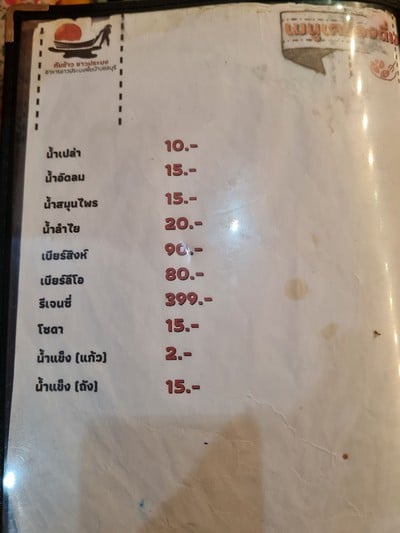 เมนูเครื่องดื่ม
น้ำเปล่า 10.-
น้ำอัดลม 15.-
น้ำสมุนไพร 15.-
น้ำลำไย 20.-
เบียร์สิงห์ 90.-
เบียร์ลีโอ 80.-
รีเจนซี่ 399.-
โซดา 15.-
น้ำแข็ง (แก้ว) 2.-
น้ำแข็ง (ถัง) 15.-